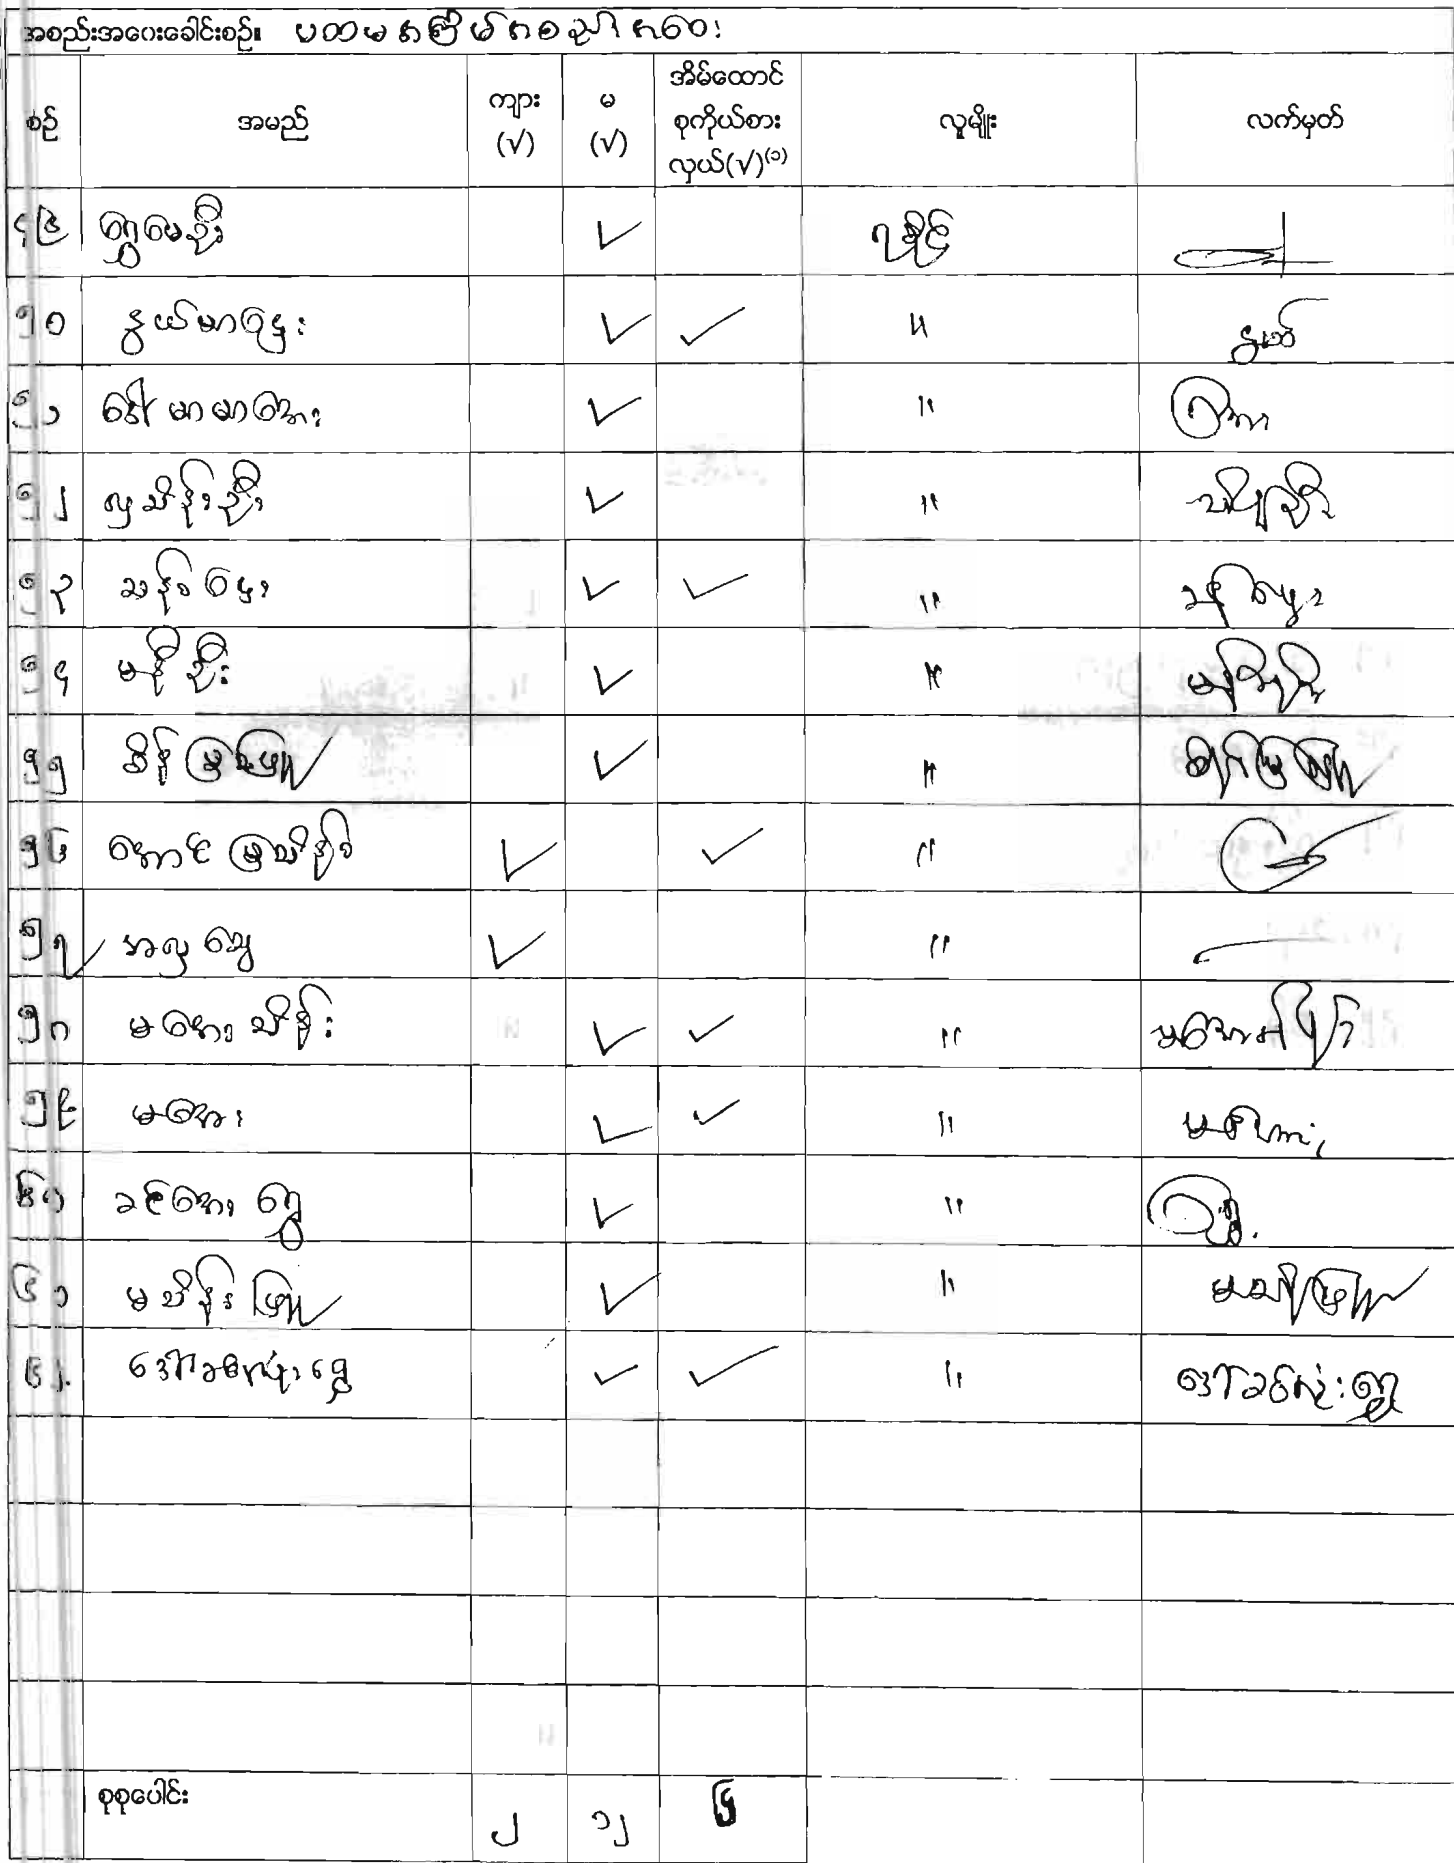 အစည်းအဝေးခေါင်းစဉ်။ ပထမအကြိမ်အစည်းအဝေး
စဉ် အမည် ကျား (√) မ (√) အိမ်ထောင်စုကိုယ်စားလှယ်(√)(၁) လူမျိုး လက်မှတ်
၄၉ ရွှေမေဦး ✓ ရခိုင်
၅၀ နွယ်မာဌေး ✓ ✓ " နွယ်
၅၁ ဒေါ်မာမာအေး ✓ "
၅၂ လှသိန်းဦး ✓ "
၅၃ သန်းဌေး ✓ ✓ "
၅၄ မနီဦး ✓ "
၅၅ စိန်မြဖြူ ✓ "
၅၆ အောင်မြသိန်း ✓ ✓ "
၅၇ အလှသွေ ✓ "
၅၈ မအေးသိန်း ✓ ✓ "
၅၉ မအေး ✓ ✓ " မအေး
၆၀ ခင်အေးရွှေ ✓ "
၆၁ မသိန်းဖြူ ✓ "
၆၂ ဒေါ်ခင်လုံးရွှေ ✓ ✓ " ဒေါ်ခင်လုံးရွှေ
စုစုပေါင်း ၂ ၁၂ ၆